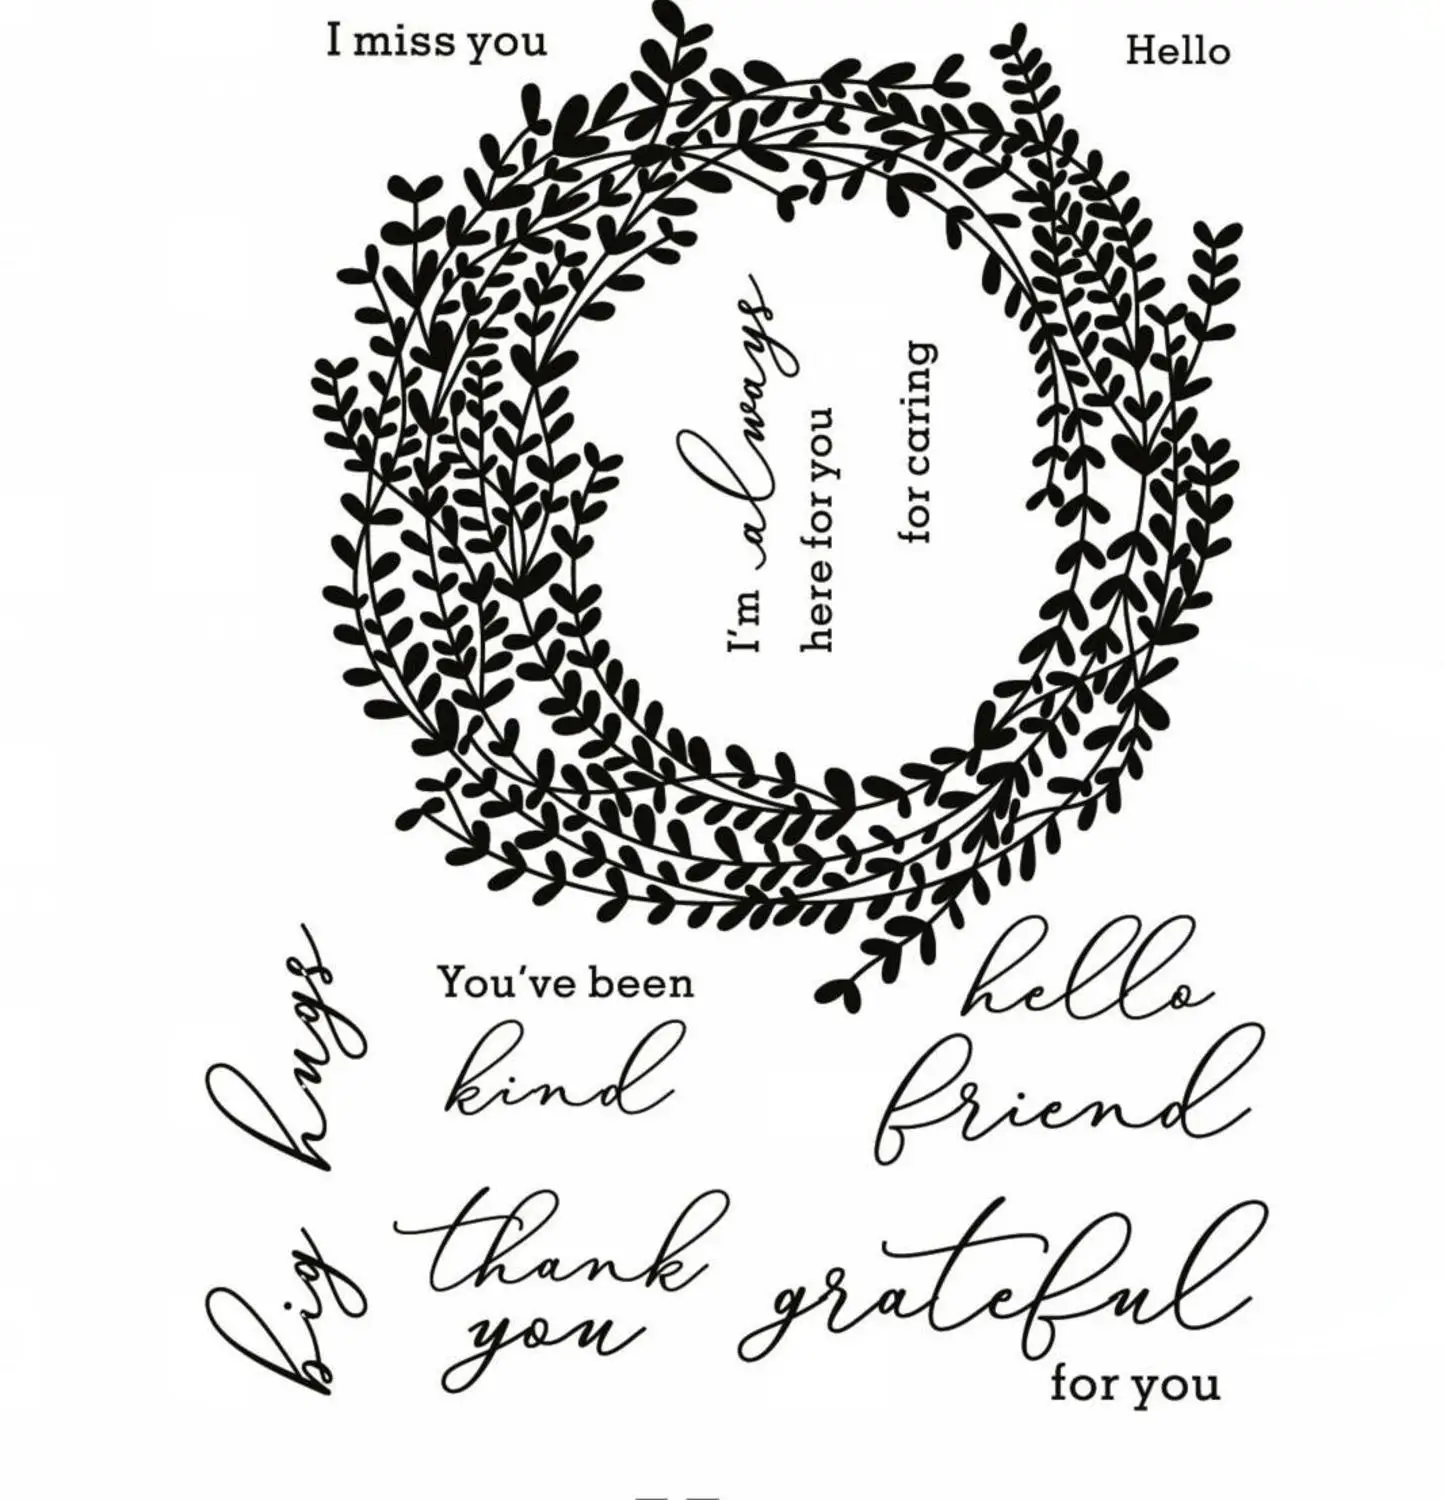 I miss you
Hello
I'm always
here for you
for caring
big hugs
You've been
kind
hello
friend
thank
you
grateful
for you